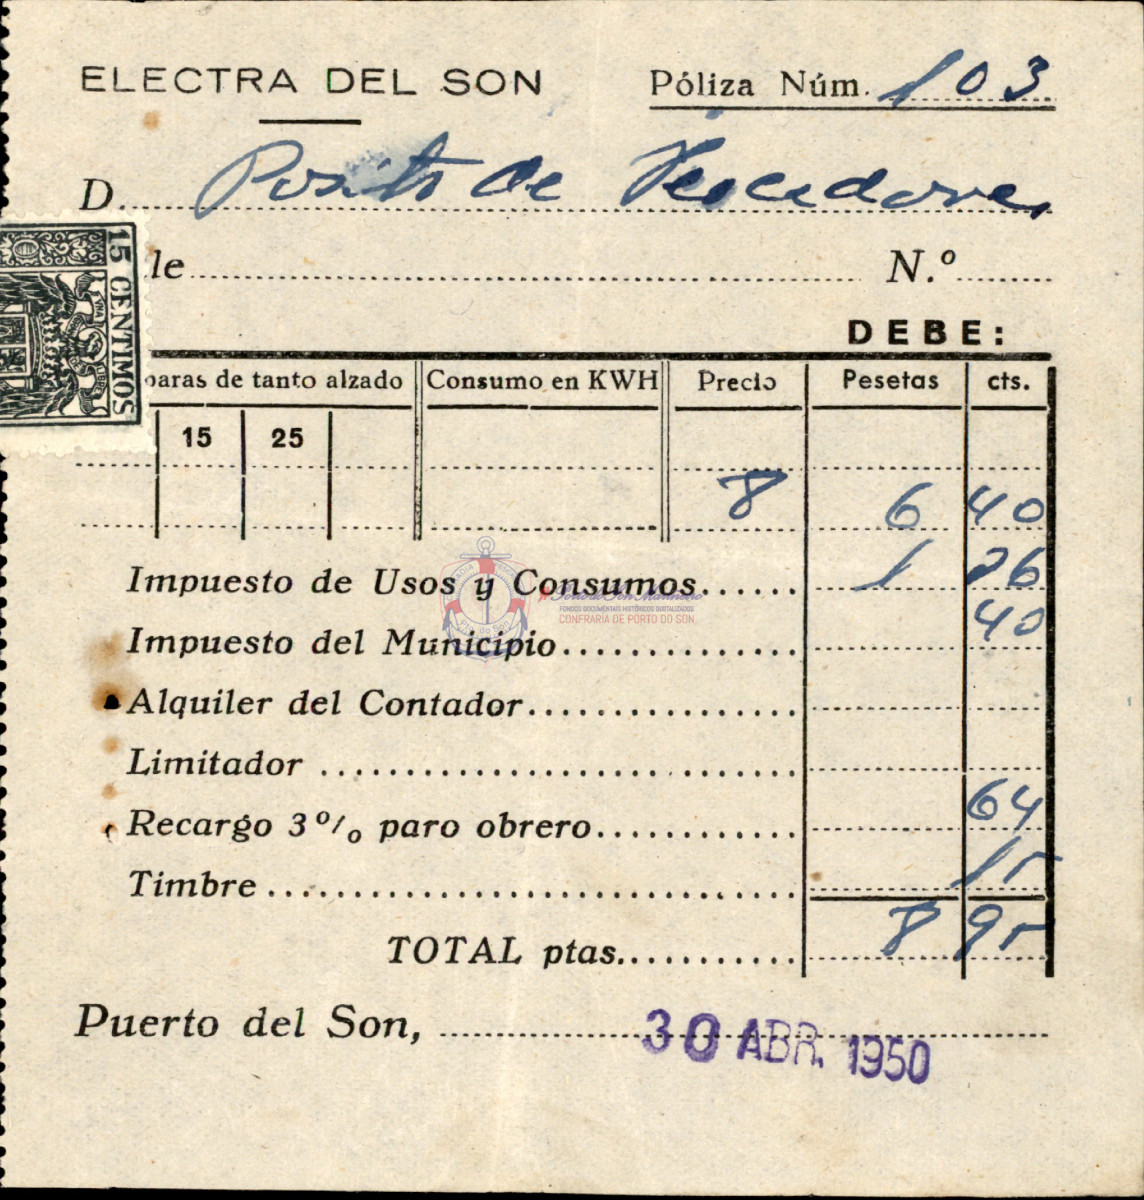 ELECTRA DEL SON
Póliza Núm. 103
D. Posito de Pescadores
15 CENTIMOS
lle N.º
DEBE:
paras de tanto alzado Consumo en KWH Precio Pesetas cts.
15 25
8 6 40
Impuesto de Usos y Consumos 1 26
Impuesto del Municipio 40
Alquiler del Contador
Limitador
Recargo 3% paro obrero 64
Timbre 15
TOTAL ptas. 8 95
Puerto del Son, 30 ABR. 1950
Porto do Son Mariñeiro
FONDOS DOCUMENTAIS HISTÓRICOS DIXITALIZADOS
CONFRARIA DE PORTO DO SON